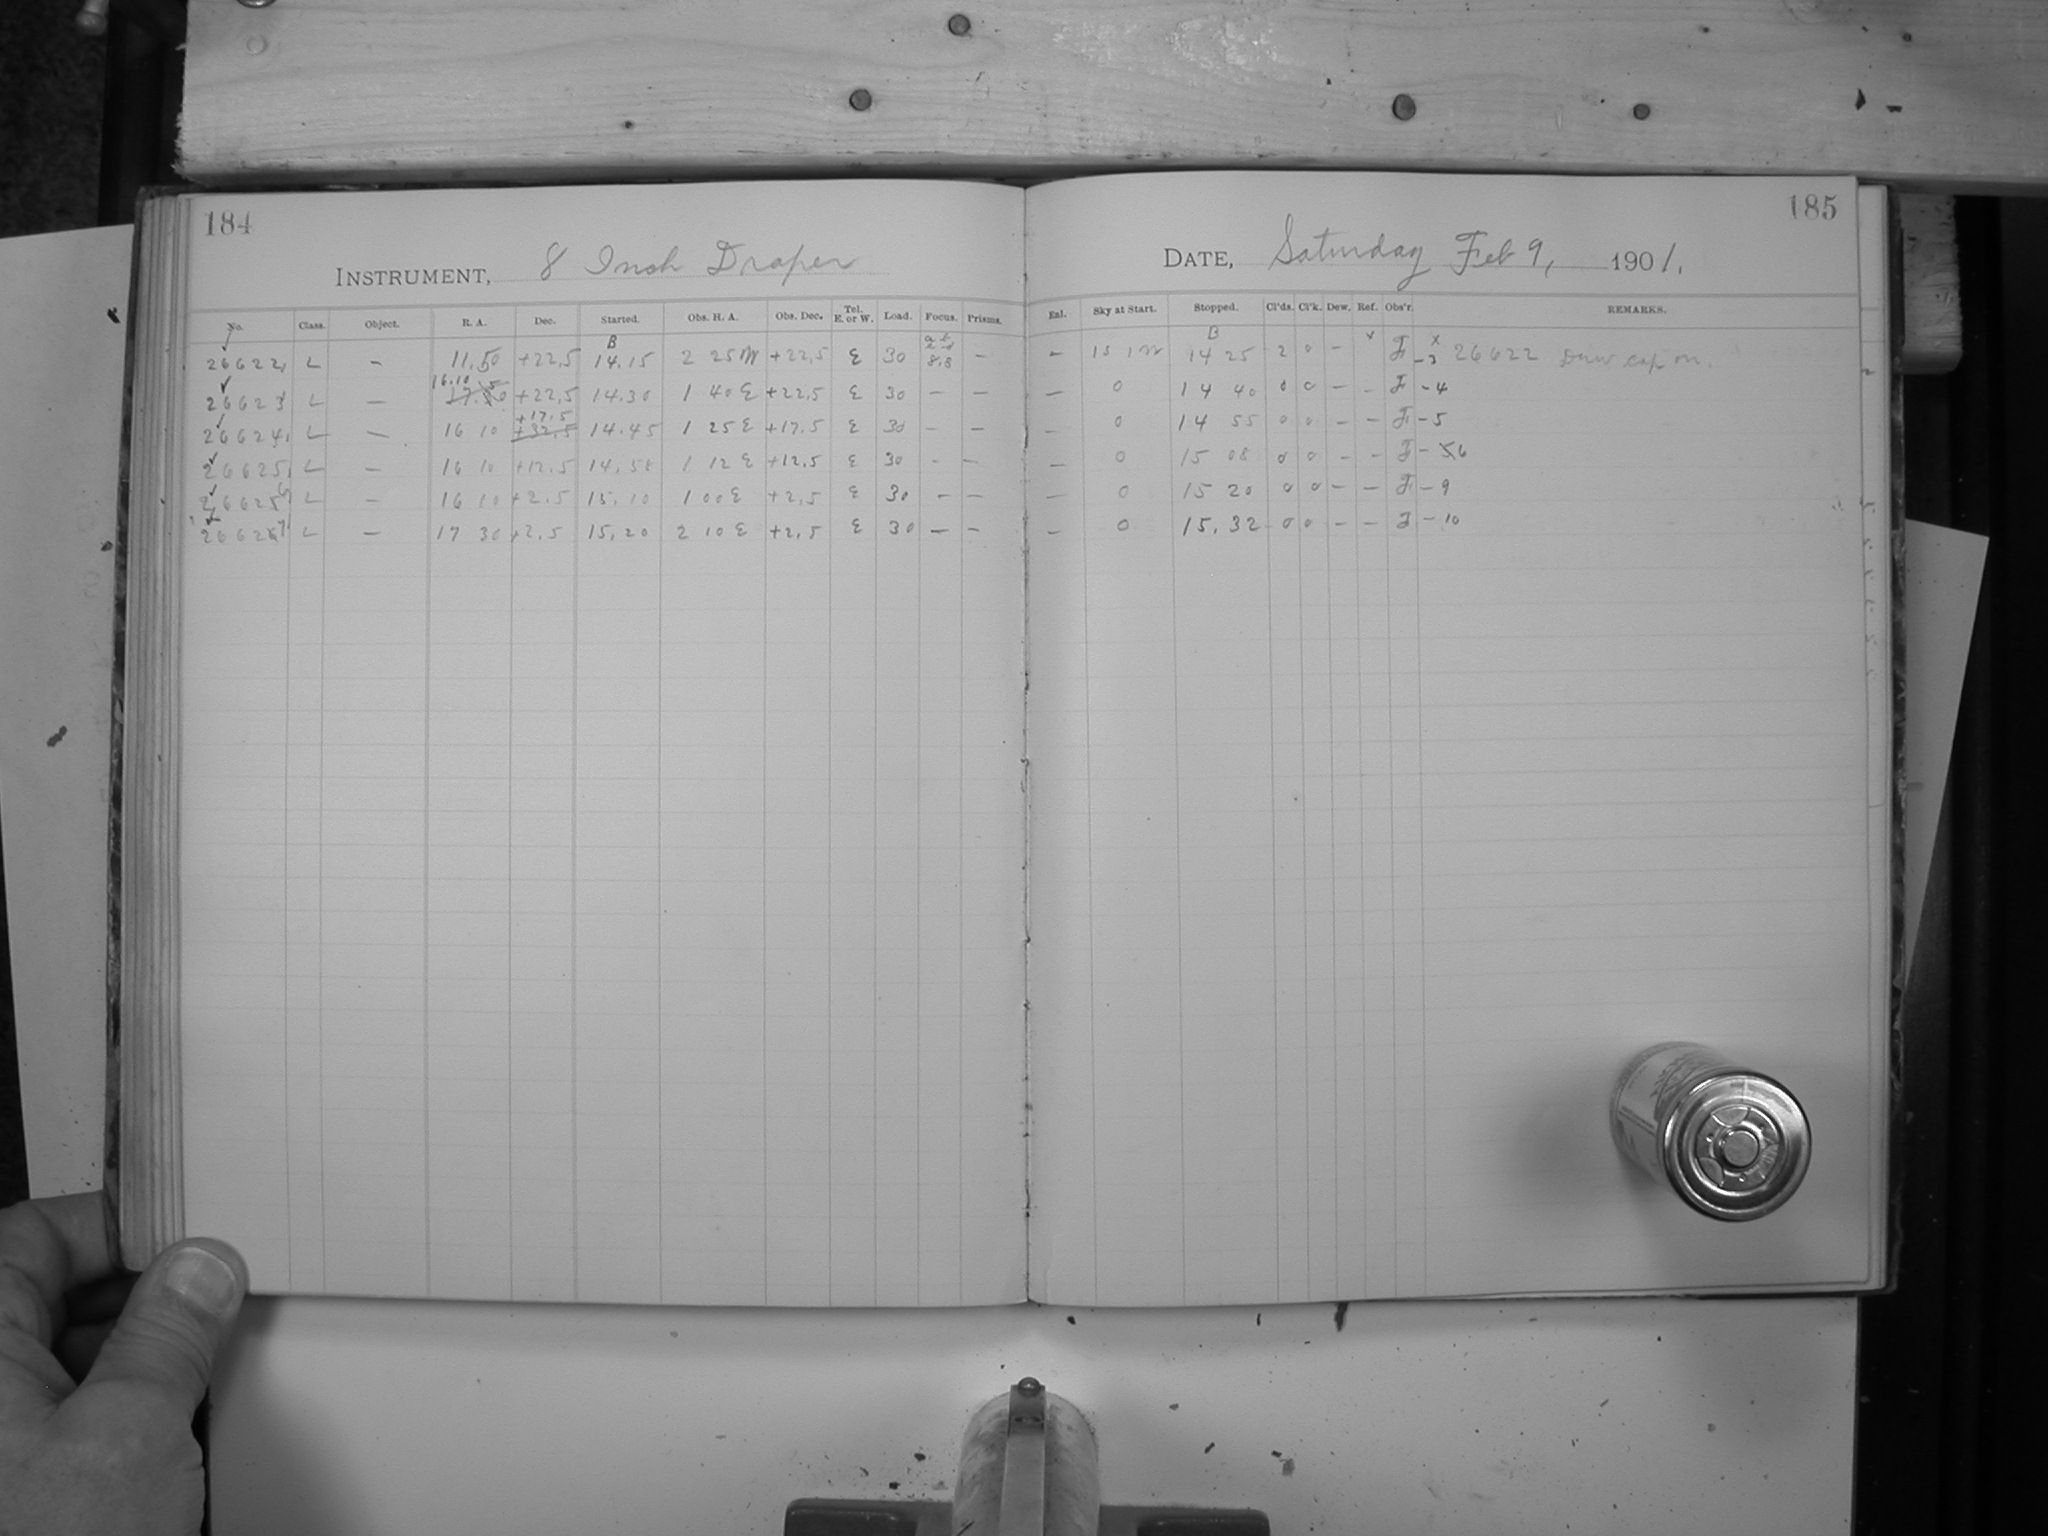 184
INSTRUMENT, 8 Inch Draper
No. Class. Object. R. A. Dec. Started. Obs. H. A. Obs. Dec. Tel. E. or W. Load. Focus. Prisms.
B
26622 L — 11.50 +22.5 14.15 2 25 W +22.5 E 30 8.8 —
16.10
26623 L — +22.5 14.30 1 40 E +22.5 E 30 — —
+17.5
26624 L — 16 10 +32.5 14.45 1 25 E +17.5 E 30 — —
26625 L — 16 10 +12.5 14.58 1 12 E +12.5 E 30 - —
26626 L — 16 10 +2.5 15.10 1 00 E +2.5 E 30 — —
26627 L — 17 30 +2.5 15.20 2 10 E +2.5 E 30 — —
185
DATE, Saturday Feb 9, 1901.
Enl. Sky at Start. Stopped. Cl'ds. Cl'k. Dew. Ref. Obs'r. REMARKS.
B
— 1s 1m 14 25 2 0 — F -3 x 26622 Dew cap on.
— 0 14 40 0 0 — - F -4
— 0 14 55 0 0 — — F -5
— 0 15 08 0 0 — — F - 6
— 0 15 20 0 0 — — F - 9
— 0 15.32 0 0 — — F - 10